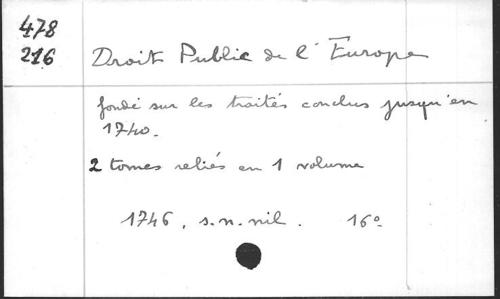 478
216
Droit Public de l'Europe
fondé sur les traités conclus jusqu'en
1740.
2 tomes reliés en 1 volume
1746, s.n.nil. 16°